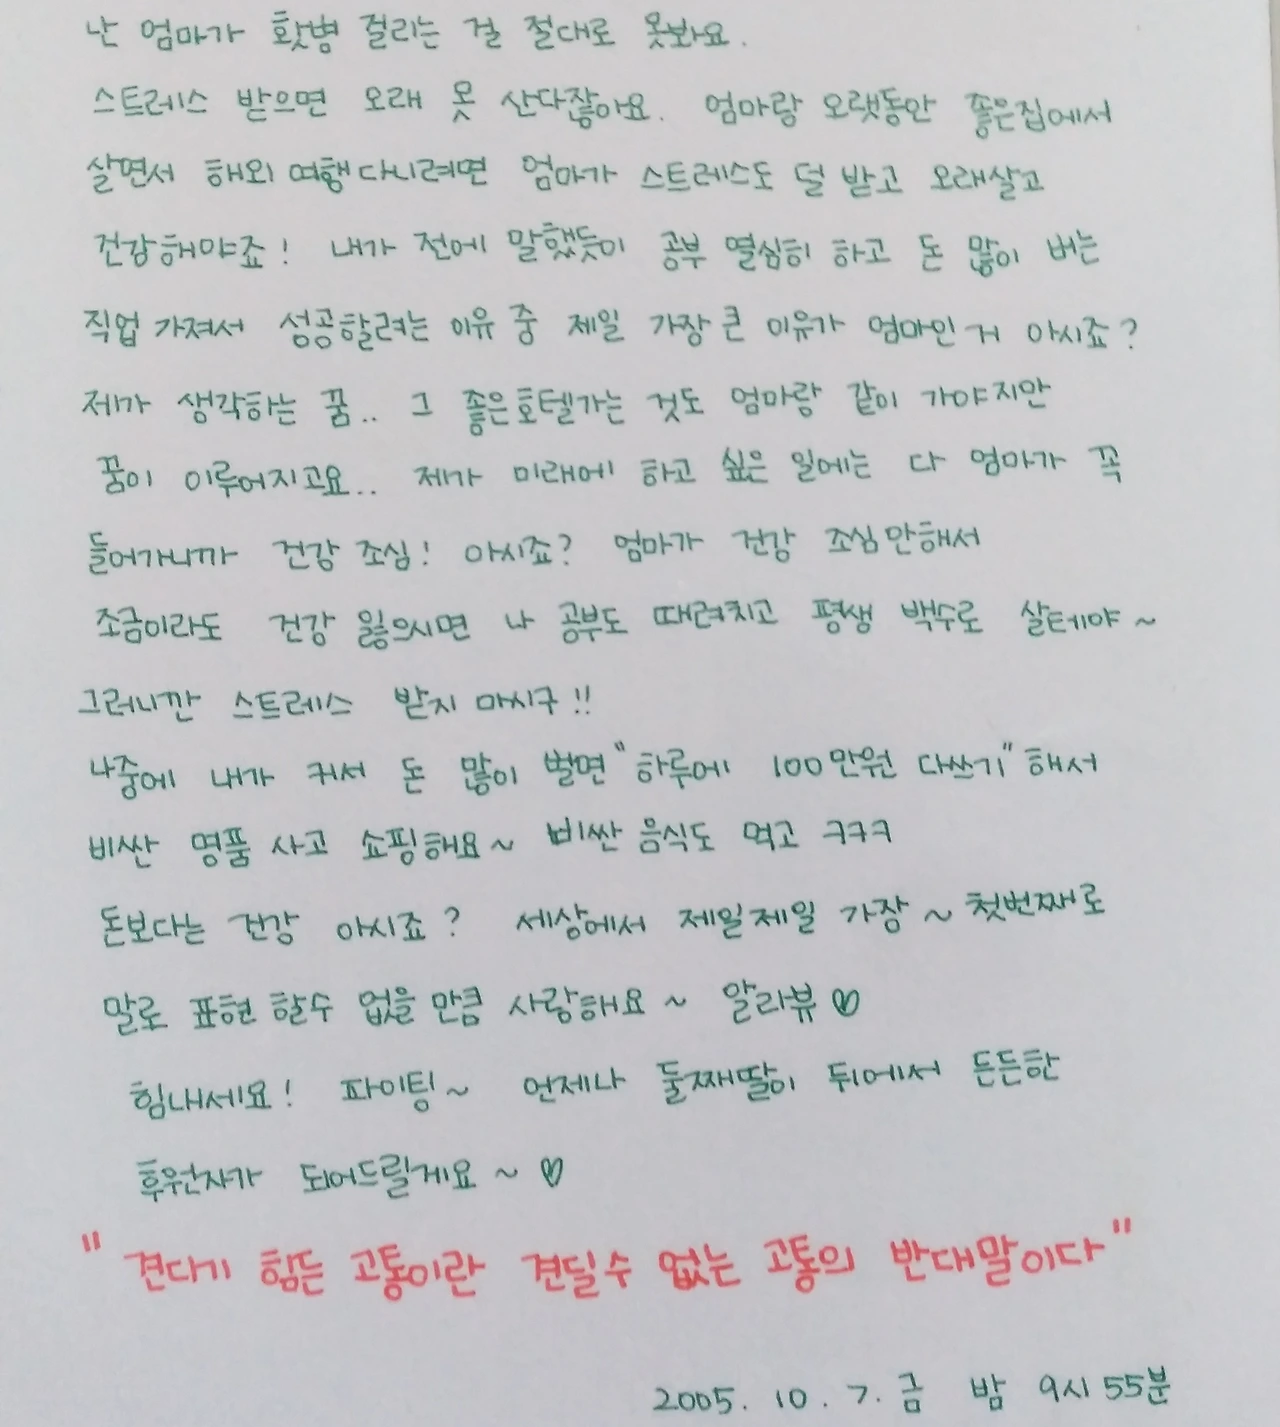 난 엄마가 홧병 걸리는 걸 절대로 못봐요.
스트레스 받으면 오래 못 산다잖아요. 엄마랑 오랫동안 좋은집에서
살면서 해외 여행다니려면 엄마가 스트레스도 덜 받고 오래살고
건강해야죠! 내가 전에 말했듯이 공부 열심히 하고 돈 많이 버는
직업 가져서 성공할려는 이유 중 제일 가장 큰 이유가 엄마인 거 아시죠?
제가 생각하는 꿈.. 그 좋은호텔가는 것도 엄마랑 같이 가야지만
꿈이 이루어지고요.. 제가 미래에 하고 싶은 일에는 다 엄마가 꼭
들어가니까 건강 조심! 아시죠? 엄마가 건강 조심안해서
조금이라도 건강 잃으시면 나 공부도 때려치고 평생 백수로 살테야~
그러니깐 스트레스 받지 마시구!!
나중에 내가 커서 돈 많이 벌면 "하루에 100만원 다쓰기" 해서
비싼 명품 사고 쇼핑해요~ 비싼 음식도 먹고 ㅋㅋㅋ
돈보다는 건강 아시죠? 세상에서 제일제일 가장~ 첫번째로
말로 표현 할수 없을 만큼 사랑해요~ 알라뷰♡
힘내세요! 파이팅~ 언제나 둘째딸이 뒤에서 든든한
후원자가 되어드릴게요~♡
"견다기 힘든 고통이란 견딜수 없는 고통의 반대말이다"
2005. 10. 7. 금 밤 9시 55분